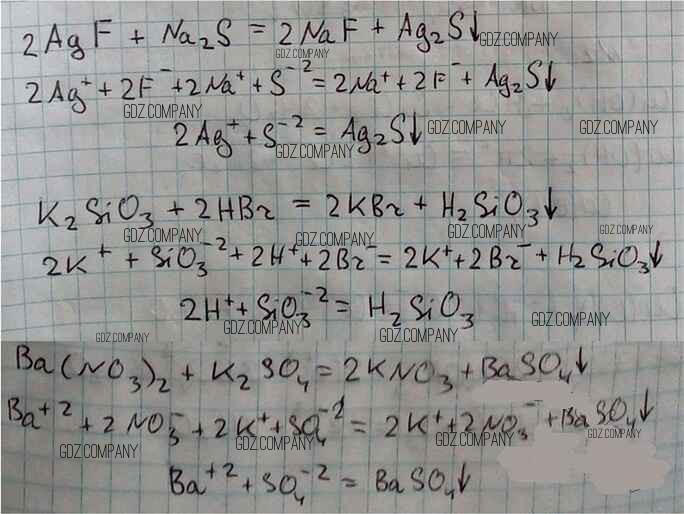 2AgF + Na₂S = 2NaF + Ag₂S↓ GDZ.COMPANY
GDZ.COMPANY
2Ag⁺ + 2F⁻ + 2Na⁺ + S⁻² = 2Na⁺ + 2F⁻ + Ag₂S↓
GDZ.COMPANY
2Ag⁺ + S⁻² = Ag₂S↓ GDZ.COMPANY GDZ.COMPANY
GDZ.COMPANY
K₂SiO₃ + 2HBr = 2KBr + H₂SiO₃↓
GDZ.COMPANY GDZ.COMPANY GDZ.COMPANY GDZ.COMPANY
2K⁺ + SiO₃⁻² + 2H⁺ + 2Br⁻ = 2K⁺ + 2Br⁻ + H₂SiO₃↓
2H⁺ + SiO₃⁻² = H₂SiO₃
GDZ.COMPANY GDZ.COMPANY GDZ.COMPANY GDZ.COMPANY
Ba(NO₃)₂ + K₂SO₄ = 2KNO₃ + BaSO₄↓
Ba⁺² + 2NO₃⁻ + 2K⁺ + SO₄⁻² = 2K⁺ + 2NO₃⁻ + BaSO₄↓
GDZ.COMPANY GDZ.COMPANY GDZ.COMPANY GDZ.COMPANY
Ba⁺² + SO₄⁻² = BaSO₄↓